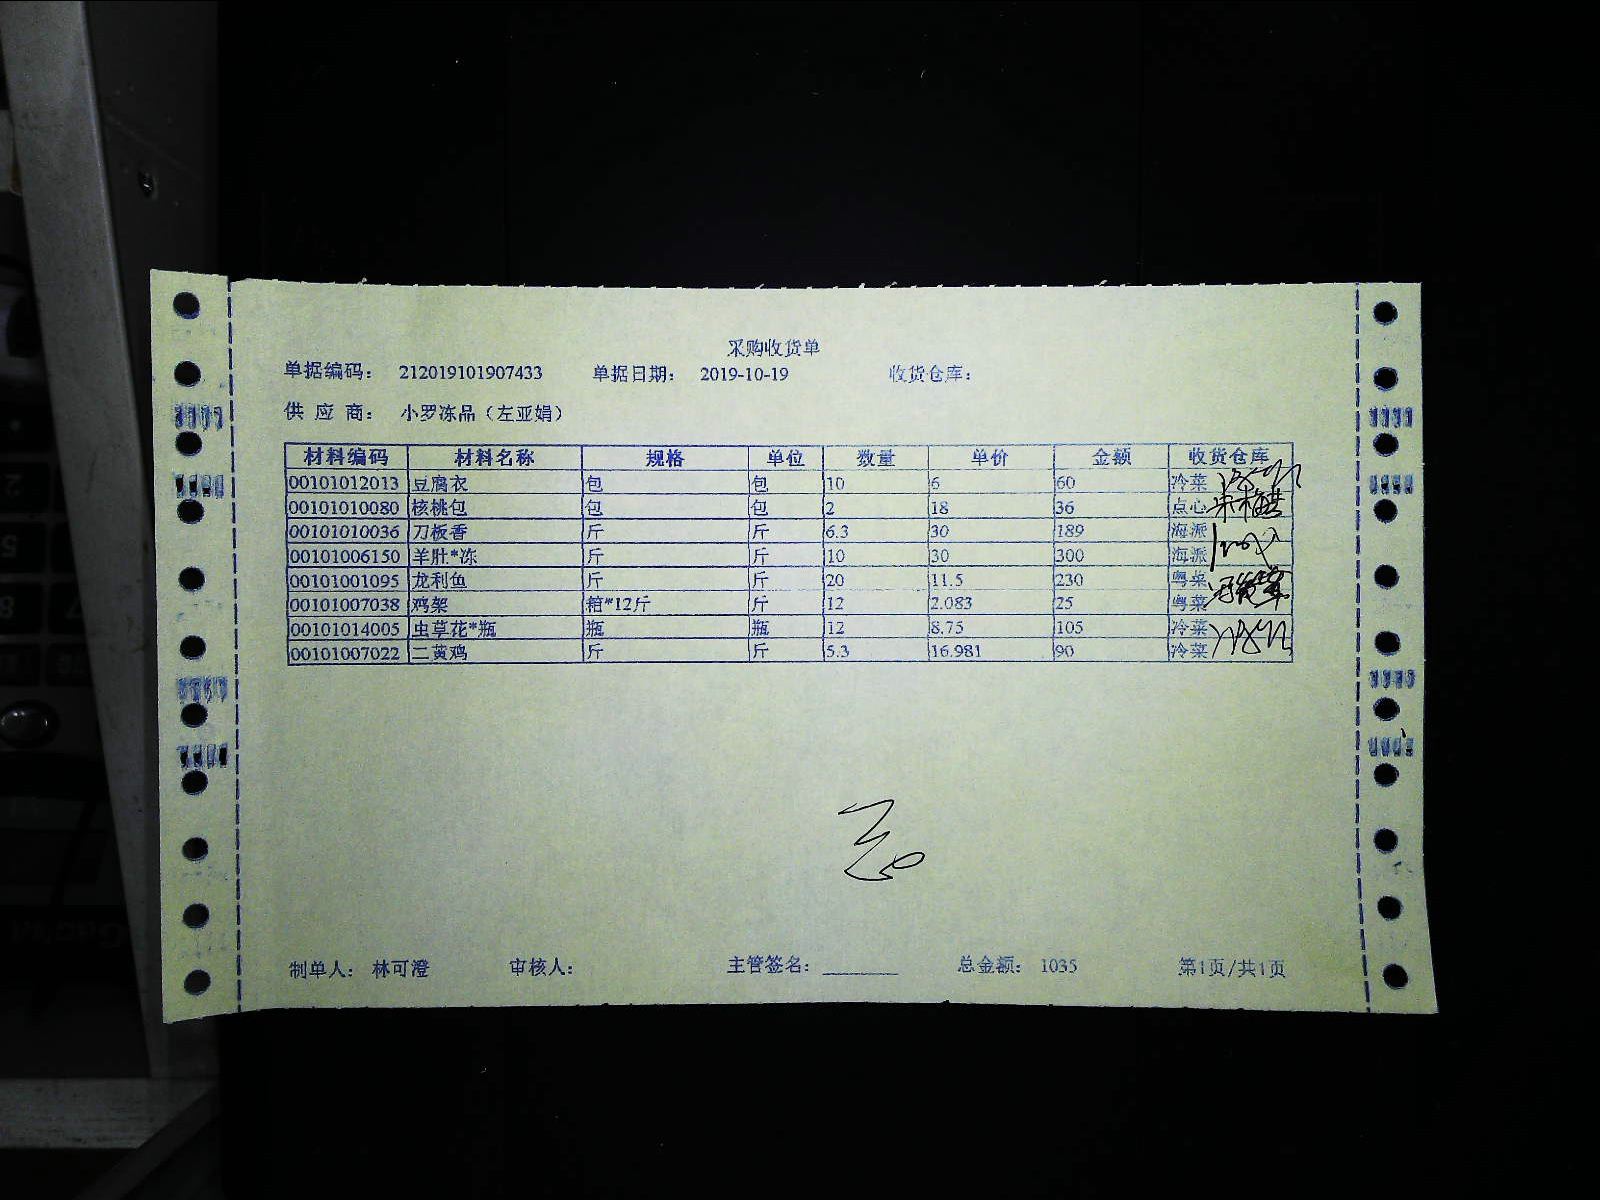 采购收货单
单据编码： 212019101907433 单据日期： 2019-10-19 收货仓库：
供 应 商： 小罗冻品（左亚娟）
材料编码 材料名称 规格 单位 数量 单价 金额 收货仓库
00101012013 豆腐衣 包 包 10 6 60 冷菜
00101010080 核桃包 包 包 2 18 36 点心
00101010036 刀板香 斤 斤 6.3 30 189 海派
00101006150 羊肚*冻 斤 斤 10 30 300 海派
00101001095 龙利鱼 斤 斤 20 11.5 230 粤菜
00101007038 鸡架 箱*12斤 斤 12 2.083 25 粤菜
00101014005 虫草花*瓶 瓶 瓶 12 8.75 105 冷菜
00101007022 二黄鸡 斤 斤 5.3 16.981 90 冷菜
制单人： 林可澄 审核人： 主管签名： 总金额： 1035 第1页/共1页